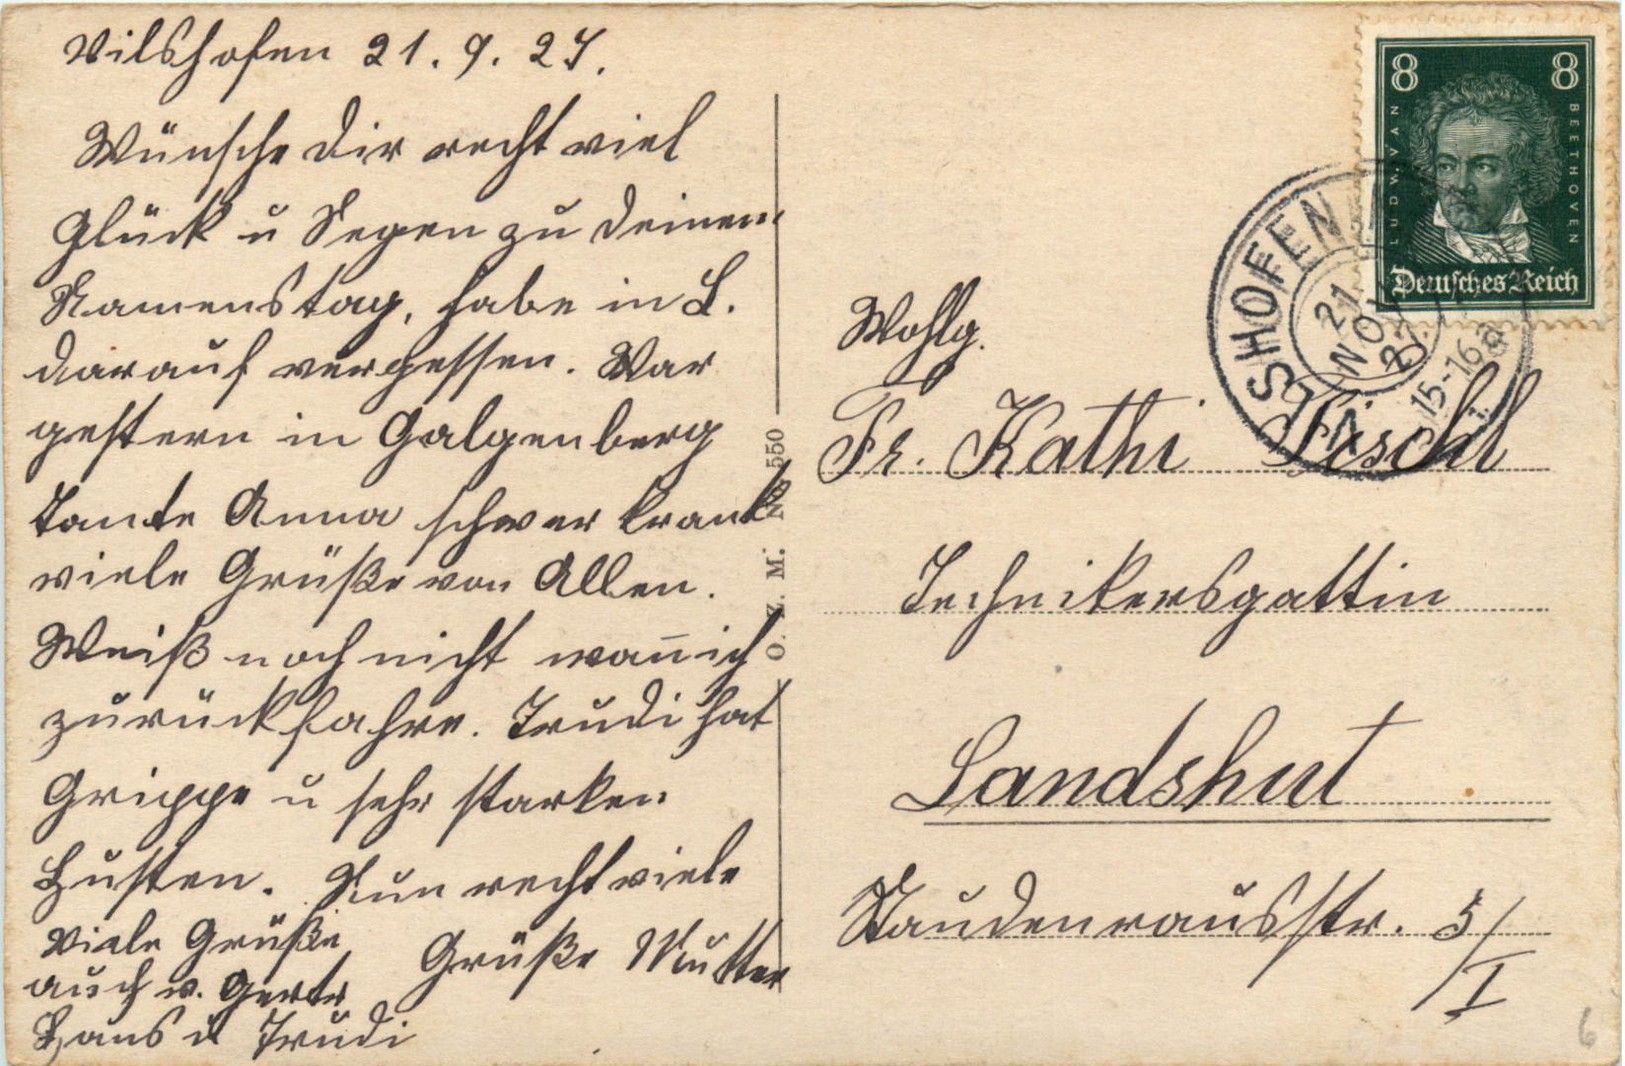 Vilshofen 21.9.27.
Wünsche Dir recht viel
Glück u Segen zu Deinem
Namenstag, habe in L.
darauf vergessen. War
gestern in Galgenberg
Tante Anna schwer krank
viele Grüße von Allen.
Weiß noch nicht wan̅ ich
zurückfahre. Trudi hat
Grippe u sehr starken
Husten. Nun recht viele
Grüße Mutter
viele Grüße
auch v. Gertr
Hans u Trudi
O. Z. M. 550
8 8
LUDW. VAN BEETHOVEN
Deutsches Reich
VILSHOFEN
21 NOV 27
15-16
Wohlg.
Fr. Kathi Fischl
Technikersgattin
Landshut
Staudenrausstr. 5/I
6